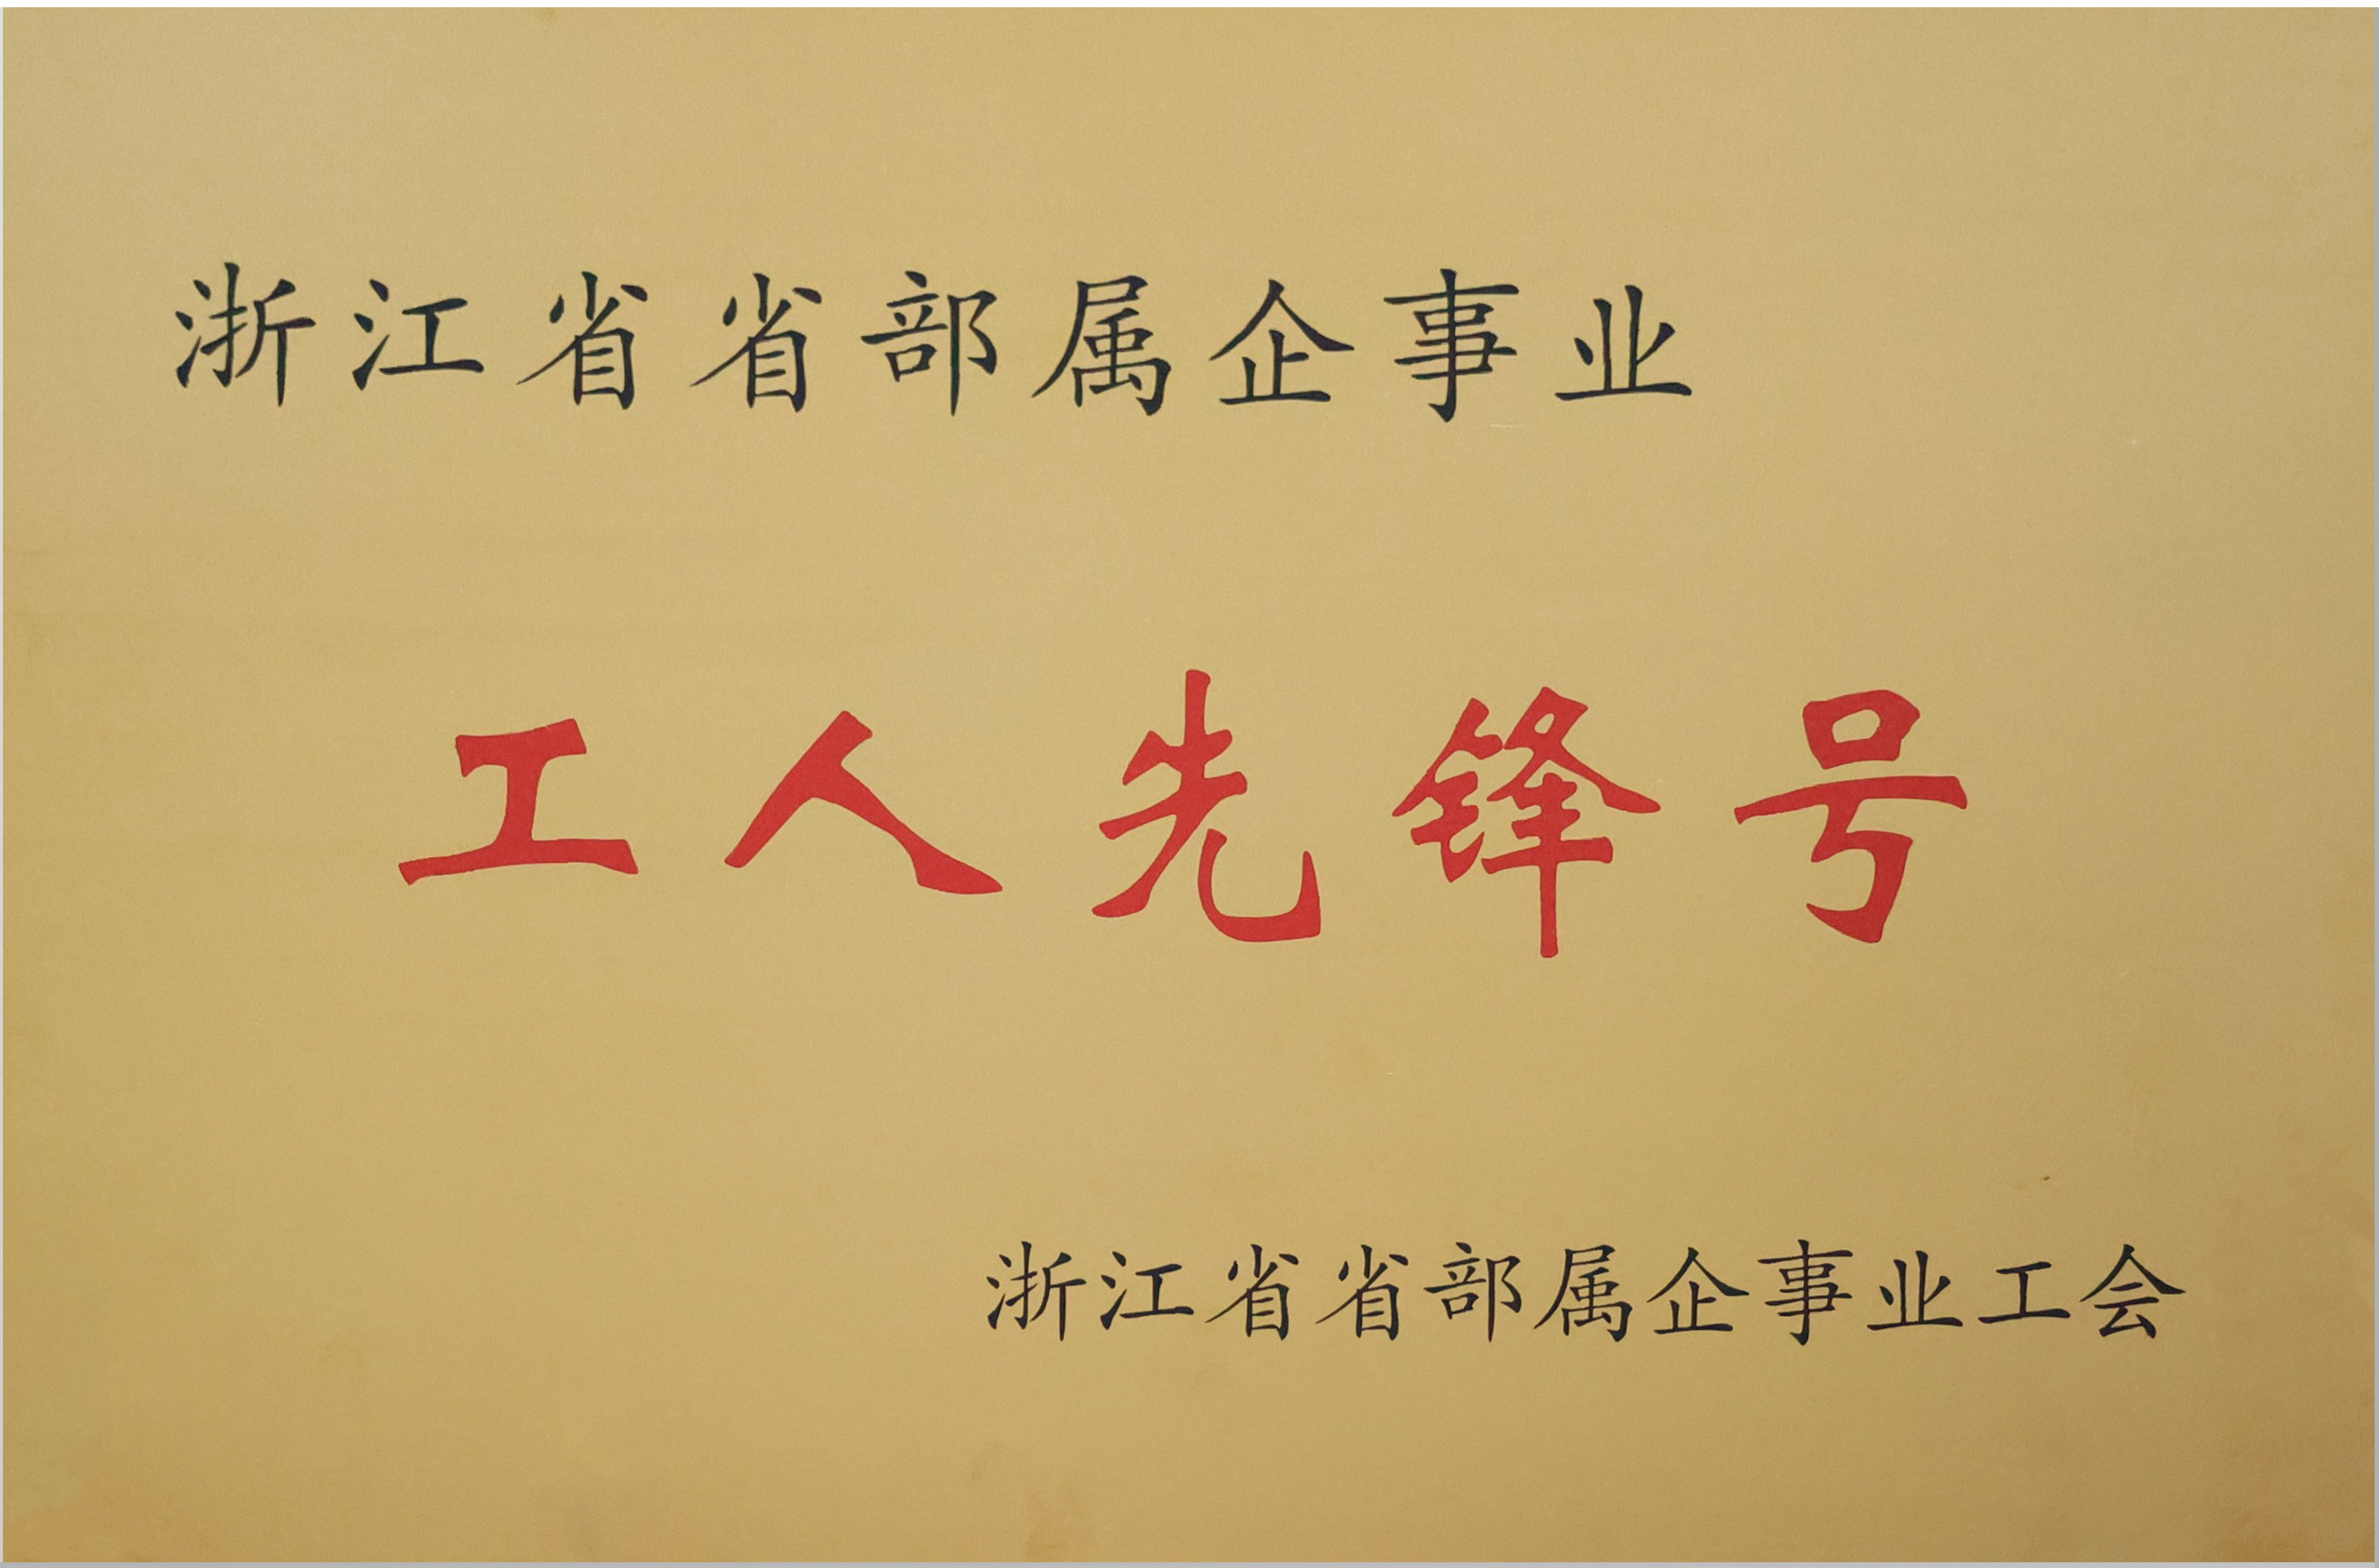 浙江省省部属企事业
工人先锋号
浙江省省部属企事业工会